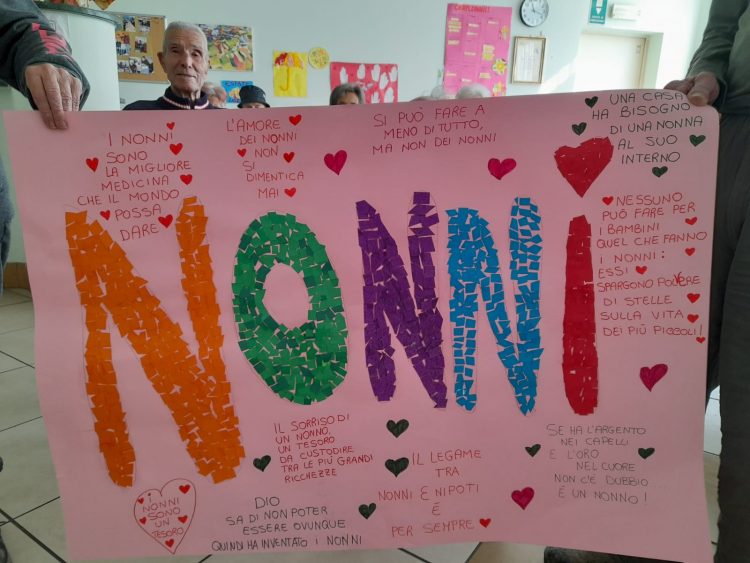 I NONNI
SONO
LA MIGLIORE
MEDICINA
CHE IL MONDO
POSSA
DARE
L'AMORE
DEI NONNI
NON
SI
DIMENTICA
MAI
SI PUÒ FARE A
MENO DI TUTTO,
MA NON DEI NONNI
UNA CASA
HA BISOGNO
DI UNA NONNA
AL SUO
INTERNO
NESSUNO
PUÒ FARE PER
I BAMBINI
QUEL CHE FANNO
I NONNI:
ESSI
SPARGONO POLVERE
DI STELLE
SULLA VITA
DEI PIÙ PICCOLI!
NONNI
IL SORRISO DI
UN NONNO,
UN TESORO
DA CUSTODIRE
TRA LE PIÙ GRANDI
RICCHEZZE
IL LEGAME
TRA
NONNI E NIPOTI
È
PER SEMPRE
SE HA L'ARGENTO
NEI CAPELLI
E L'ORO
NEL CUORE
NON C'È DUBBIO
È UN NONNO!
I
NONNI
SONO
UN
TESORO
DIO
SA DI NON POTER
ESSERE OVUNQUE
QUINDI HA INVENTATO I NONNI